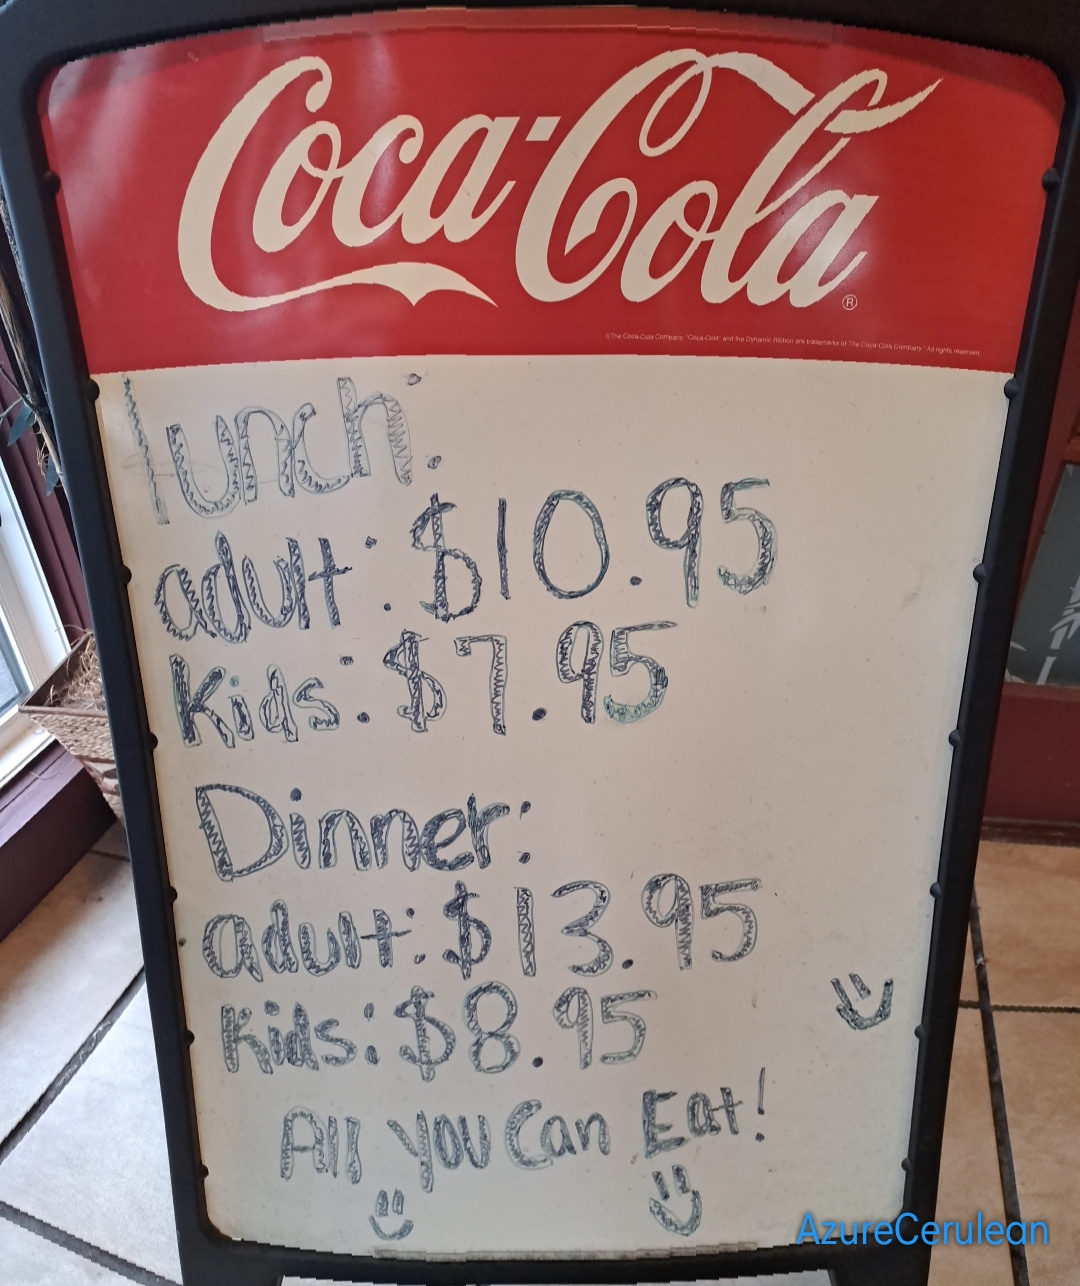 Coca-Cola
®
©The Coca-Cola Company. "Coca-Cola" and the Dynamic Ribbon are trademarks of The Coca-Cola Company. All rights reserved.
lunch:
adult: $10.95
Kids: $7.95
Dinner:
adult: $13.95
Kids: $8.95
All you Can Eat!
AzureCerulean